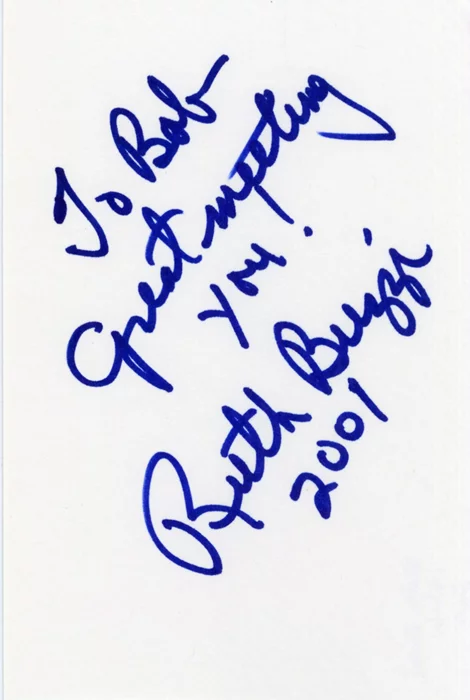 To Bob
Great meeting
you!
Ruth Buzzi
2001